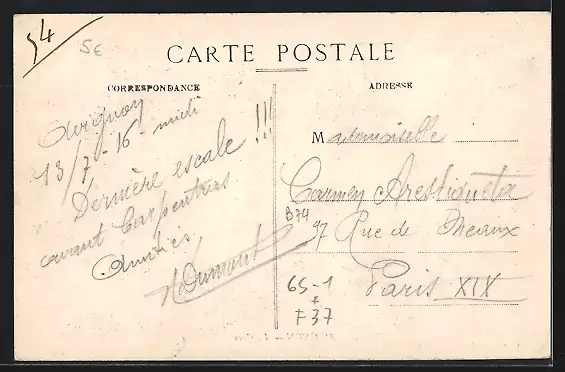 54
5€
CARTE POSTALE
CORRESPONDANCE
ADRESSE
Avignon
13/7-16 - midi
Dernière escale !!!
avant Carpentras
Amitiés
Dumont
Mademoiselle
Carmen Arestigueta
97 Rue de Meaux
Paris XIX
B74
65-1
+
F37